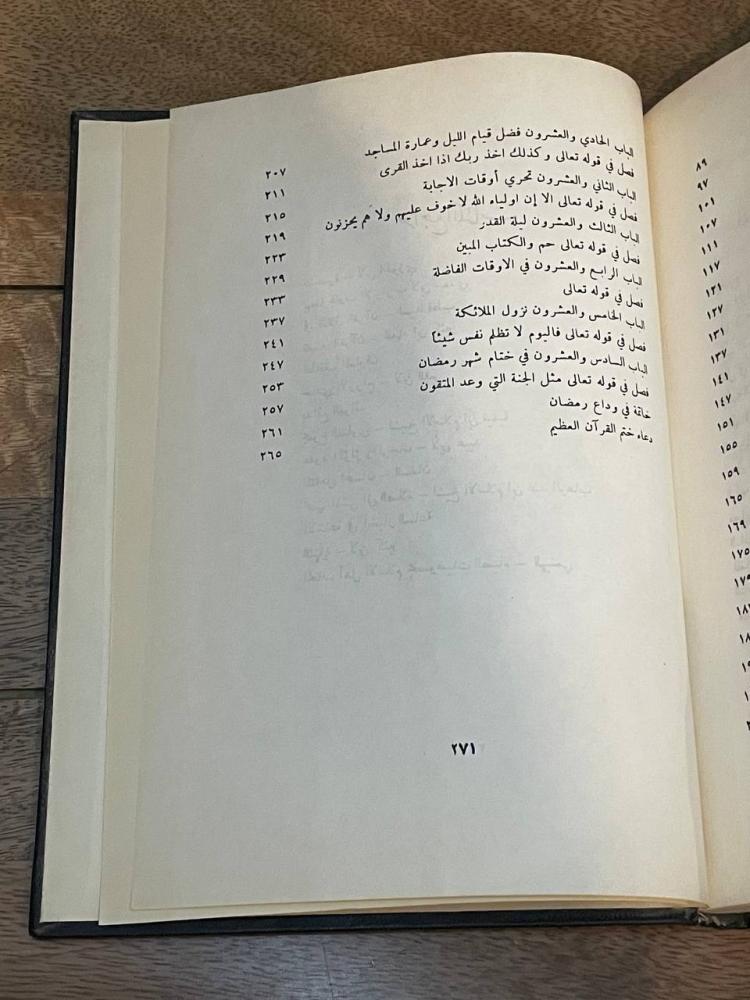 ٨٩
٩٧
١٠١
١٠٧
١١١
١١٧
١٢١
١٢٧
١٣١
١٣٧
١٤١
١٤٧
١٥١
١٥٥
١٥٩
١٦٥
١٦٩
١٧٥
الباب الحادي والعشرون فضل قيام الليل وعمارة المساجد ٢٠٧
فصل في قوله تعالى وكذلك اخذ ربك اذا اخذ القرى ٢١١
الباب الثاني والعشرون تحري أوقات الاجابة ٢١٥
فصل في قوله تعالى الا إن اولياء الله لا خوف عليهم ولا هم يحزنون ٢١٩
الباب الثالث والعشرون ليلة القدر ٢٢٣
فصل في قوله تعالى حم والكتاب المبين ٢٢٩
الباب الرابع والعشرون في الاوقات الفاضلة ٢٣٣
فصل في قوله تعالى ٢٣٧
الباب الخامس والعشرون نزول الملائكة ٢٤١
فصل في قوله تعالى فاليوم لا تظلم نفس شيئاً ٢٤٧
الباب السادس والعشرون في ختام شهر رمضان ٢٥٣
فصل في قوله تعالى مثل الجنة التي وعد المتقون ٢٥٧
خاتمة في وداع رمضان ٢٦١
دعاء ختم القرآن العظيم ٢٦٥
٢٧١